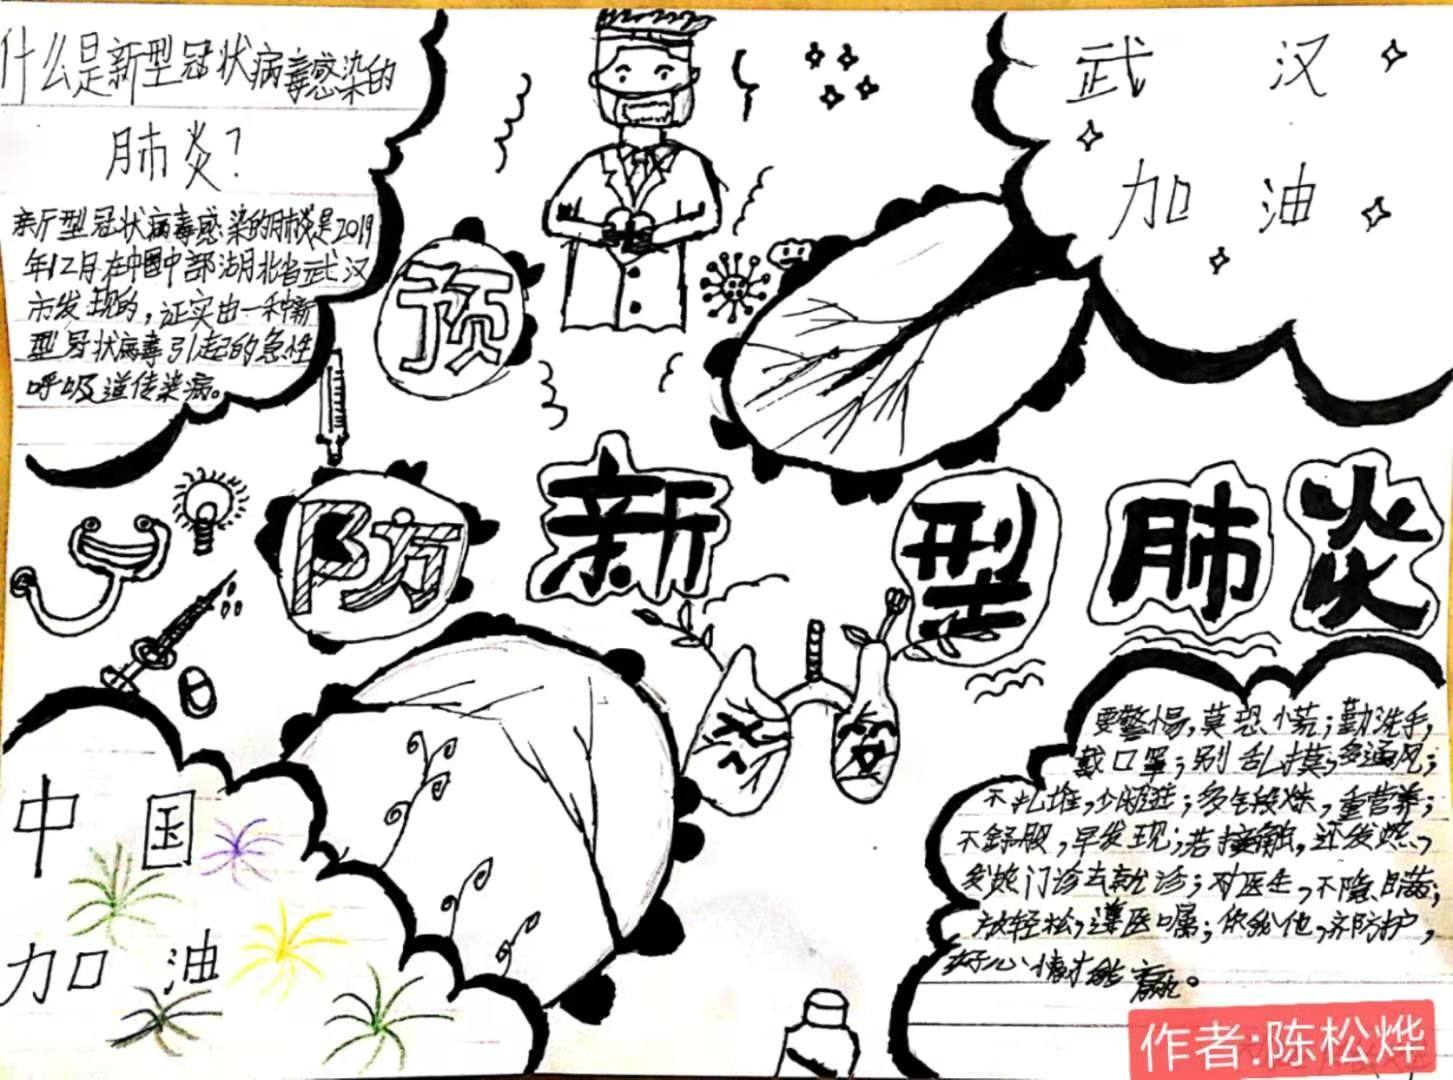 什么是新型冠状病毒感染的
肺炎?
新型冠状病毒感染的肺炎是2019
年12月在中国中部湖北省武汉
市发现的，证实由一种新
型冠状病毒引起的急性
呼吸道传染病。
武汉
加油
预
防新型肺炎
中国
加油
要警惕，莫恐慌；勤洗手，
戴口罩；别乱摸；多通风；
不扎堆，少闲逛；多锻炼，重营养；
不舒服，早发现；若接触，还发烧，
发热门诊去就诊；对医生，不隐瞒；
放轻松，遵医嘱；你我他，齐防护，
好心情才能赢。
作者:陈松烨